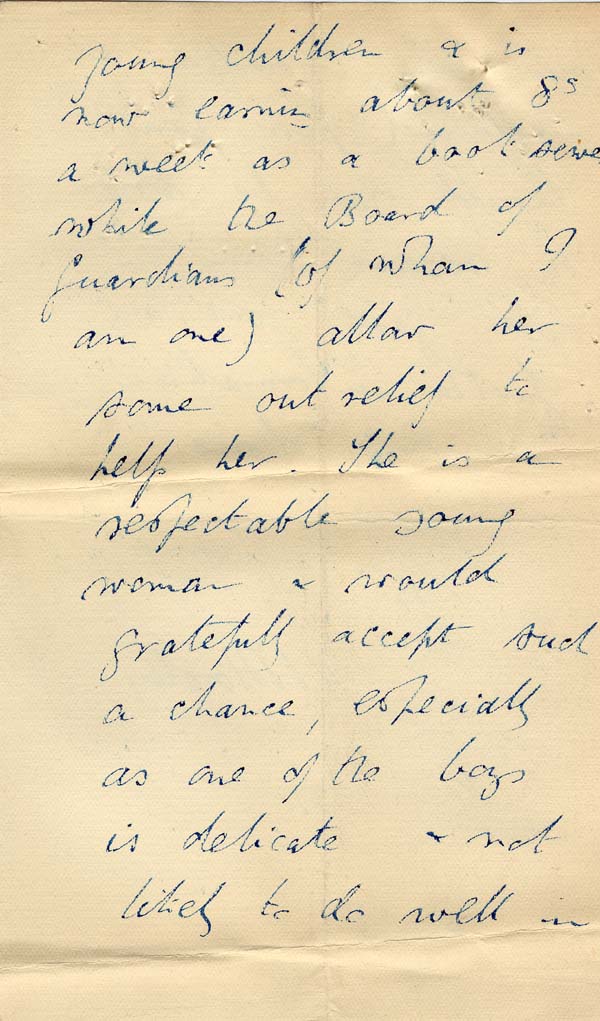 young children & is
now earning about 8s
a week as a book sewer
while the Board of
Guardians (of whom I
am one) allow her
some out relief to
help her. She is a
respectable young
woman & would
gratefully accept such
a chance, especially
as one of the boys
is delicate & not
likely to do well in